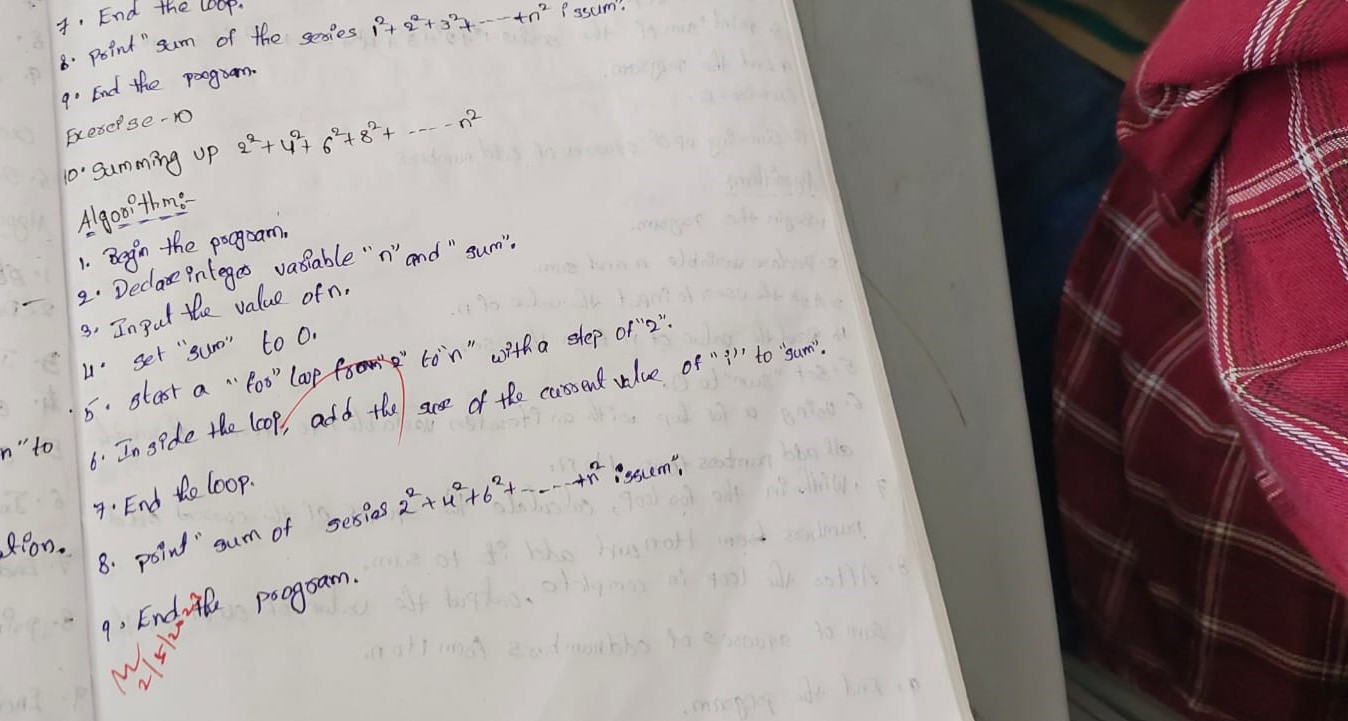 7. End the loop.
8. Print "sum of the series 1²+2²+3²+----+n² is sum".
9. End the program.
Exercise-10
10. Summing up 2²+4²+6²+8²+ ---- n²
Algorithm:-
1. Begin the program.
2. Declare integer variable "n" and "sum".
3. Input the value of n.
4. set "sum" to 0.
5. start a "for" loop from "2" to "n" with a step of "2".
n" to
6. Inside the loop, add the sqe of the current value of "i" to "sum".
7. End the loop.
tion.
8. print "sum of series 2²+4²+6²+-----+n² is sum".
9. End the program.
2/5/2023